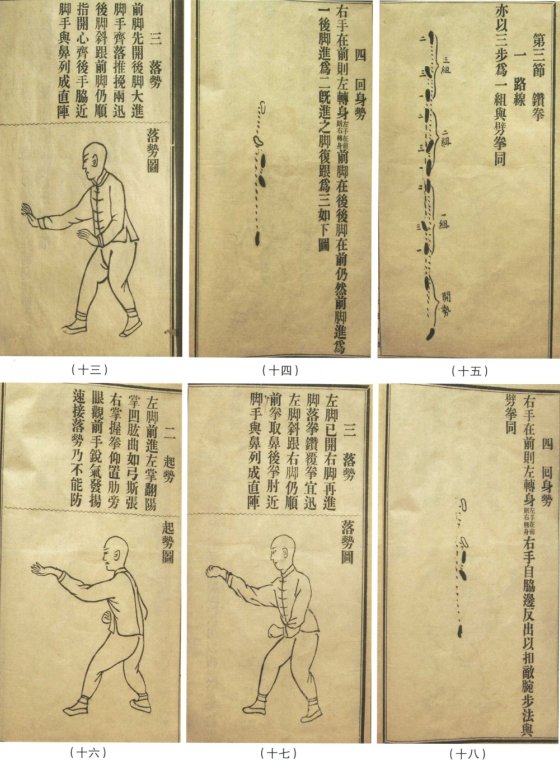 三　落勢
前脚先開後脚大進
脚手齊落推挽兩迅
後脚斜跟前脚仍順
指開心齊後手脇近
脚手與鼻列成直陣
落勢圖
（十三）
四　回身勢
右手在前則左轉身左手在前則右轉身前脚在後後脚在前仍然前脚進爲
一後脚進爲二既進之脚復跟爲三如下圖
（十四）
第三節　鑽拳
一　路線
亦以三步爲一組與劈拳同
三組
二組
一組
開勢
（十五）
二　起勢
左脚前進左掌翻陽
掌凹肱曲如弓斯張
右掌握拳仰置肋旁
眼觀前手銳氣發揚
速接落勢乃不能防
起勢圖
（十六）
三　落勢
左脚已開右脚再進
脚落拳鑽覆拳宜迅
左脚斜跟右脚仍順
前拳取鼻後拳肘近
脚手與鼻列成直陣
落勢圖
（十七）
四　囘身勢
右手在前則左轉身左手在前則右轉身右手自脇邊反出以扣敵腕步法與
劈拳同
（十八）